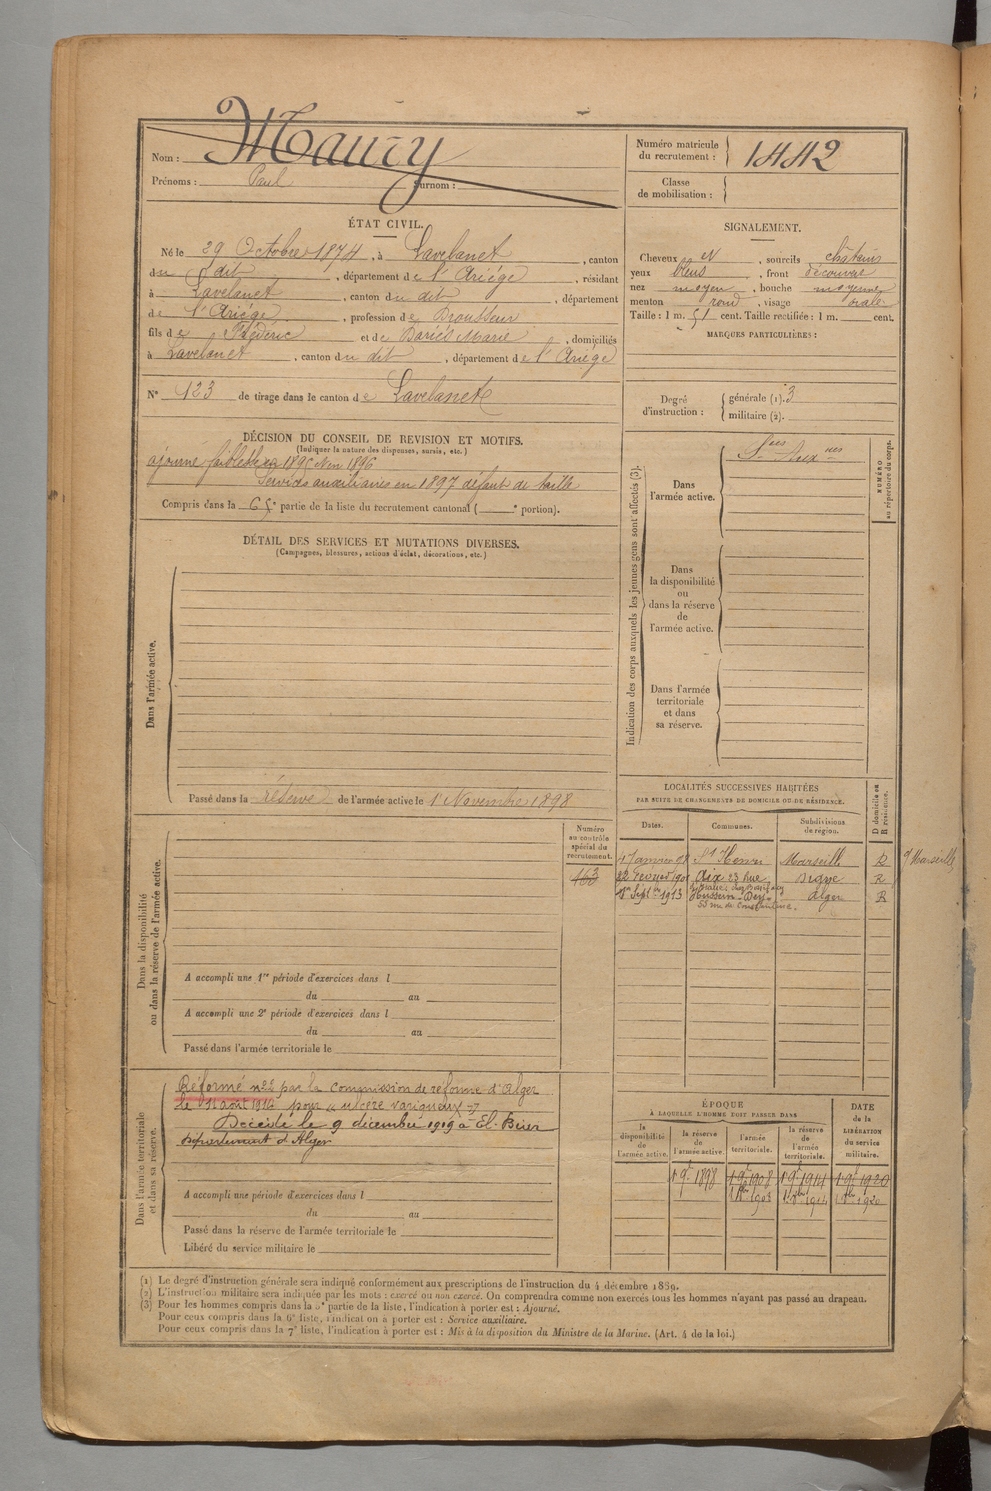 Nom : Maury
Prénoms : Paul Surnom :
Numéro matricule du recrutement : 1442
Classe de mobilisation :
ÉTAT CIVIL.
Né le 29 Octobre 1874, à Lavelanet, canton
du dit, département de l'Ariége, résidant
à Lavelanet, canton du dit, département
de l'Ariége, profession de Brousseur
fils de Frédéric et de Bariés Marie, domiciliés
à Lavelanet, canton du dit, département de l'Ariège
N° 123 de tirage dans le canton de Lavelanet
SIGNALEMENT.
Cheveux N, sourcils châtains
yeux bleus, front découvert
nez moyen, bouche moyenne
menton rond, visage ovale
Taille : 1 m. 51 cent. Taille rectifiée : 1 m. cent.
MARQUES PARTICULIÈRES :
Degré d'instruction : générale (1). 3
militaire (2).
DÉCISION DU CONSEIL DE REVISION ET MOTIFS.
(Indiquer la nature des dispenses, sursis, etc.)
ajourné faiblesse 1895 1896
Services auxiliaires en 1897 défaut de taille
Compris dans la 6e partie de la liste du recrutement cantonal ( e portion).
DÉTAIL DES SERVICES ET MUTATIONS DIVERSES.
(Campagnes, blessures, actions d'éclat, décorations, etc.)
Dans l'armée active.
Passé dans la réserve de l'armée active le 1 Novembre 1898
Indication des corps auxquels les jeunes gens sont affectés (3).
NUMÉRO au répertoire du corps.
Dans l'armée active.
Sces Auxres
Dans la disponibilité ou dans la réserve de l'armée active.
Dans l'armée territoriale et dans sa réserve.
LOCALITÉS SUCCESSIVES HABITÉES
PAR SUITE DE CHANGEMENTS DE DOMICILE OU DE RÉSIDENCE.
Dates. Communes. Subdivisions de région. D domicile ou R résidence.
17 Janvier 98 St Henri Marseille R
22 Février 190 Aix 23 Rue Digne R
1er Septbre 1913 Hussein-Dey Alger R
53 rue de Constantine.
Dans la disponibilité ou dans la réserve de l'armée active.
Numéro au contrôle spécial du recrutement.
163
A accompli une 1re période d'exercices dans l
du au
A accompli une 2e période d'exercices dans l
du au
Passé dans l'armée territoriale le
Dans l'armée territoriale et dans sa réserve.
Réformé n°2 par la commission de réforme d'Alger
le 11 août 1914 pour « ulcère variqueux »
Décédé le 9 décembre 1919 à El-Biar
département d'Alger
A accompli une période d'exercices dans l
du au
Passé dans la réserve de l'armée territoriale le
Libéré du service militaire le
ÉPOQUE
À LAQUELLE L'HOMME DOIT PASSER DANS
la disponibilité de l'armée active. la réserve de l'armée active. l'armée territoriale. la réserve de l'armée territoriale.
DATE de la LIBÉRATION du service militaire.
1 9e 1898 1 9e 1908 1 9e 1914 1 9e 1920
(1) Le degré d'instruction générale sera indiqué conformément aux prescriptions de l'instruction du 4 décembre 1889.
(2) L'instruction militaire sera indiquée par les mots : exercé ou non exercé. On comprendra comme non exercés tous les hommes n'ayant pas passé au drapeau.
(3) Pour les hommes compris dans la 5e partie de la liste, l'indication à porter est : Ajourné.
Pour ceux compris dans la 6e liste, l'indication à porter est : Service auxiliaire.
Pour ceux compris dans la 7e liste, l'indication à porter est : Mis à la disposition du Ministre de la Marine. (Art. 4 de la loi.)